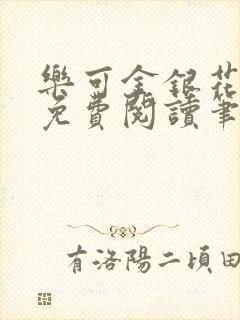 樂可金銀花
免費閱讀筆
有洛陽二頃田